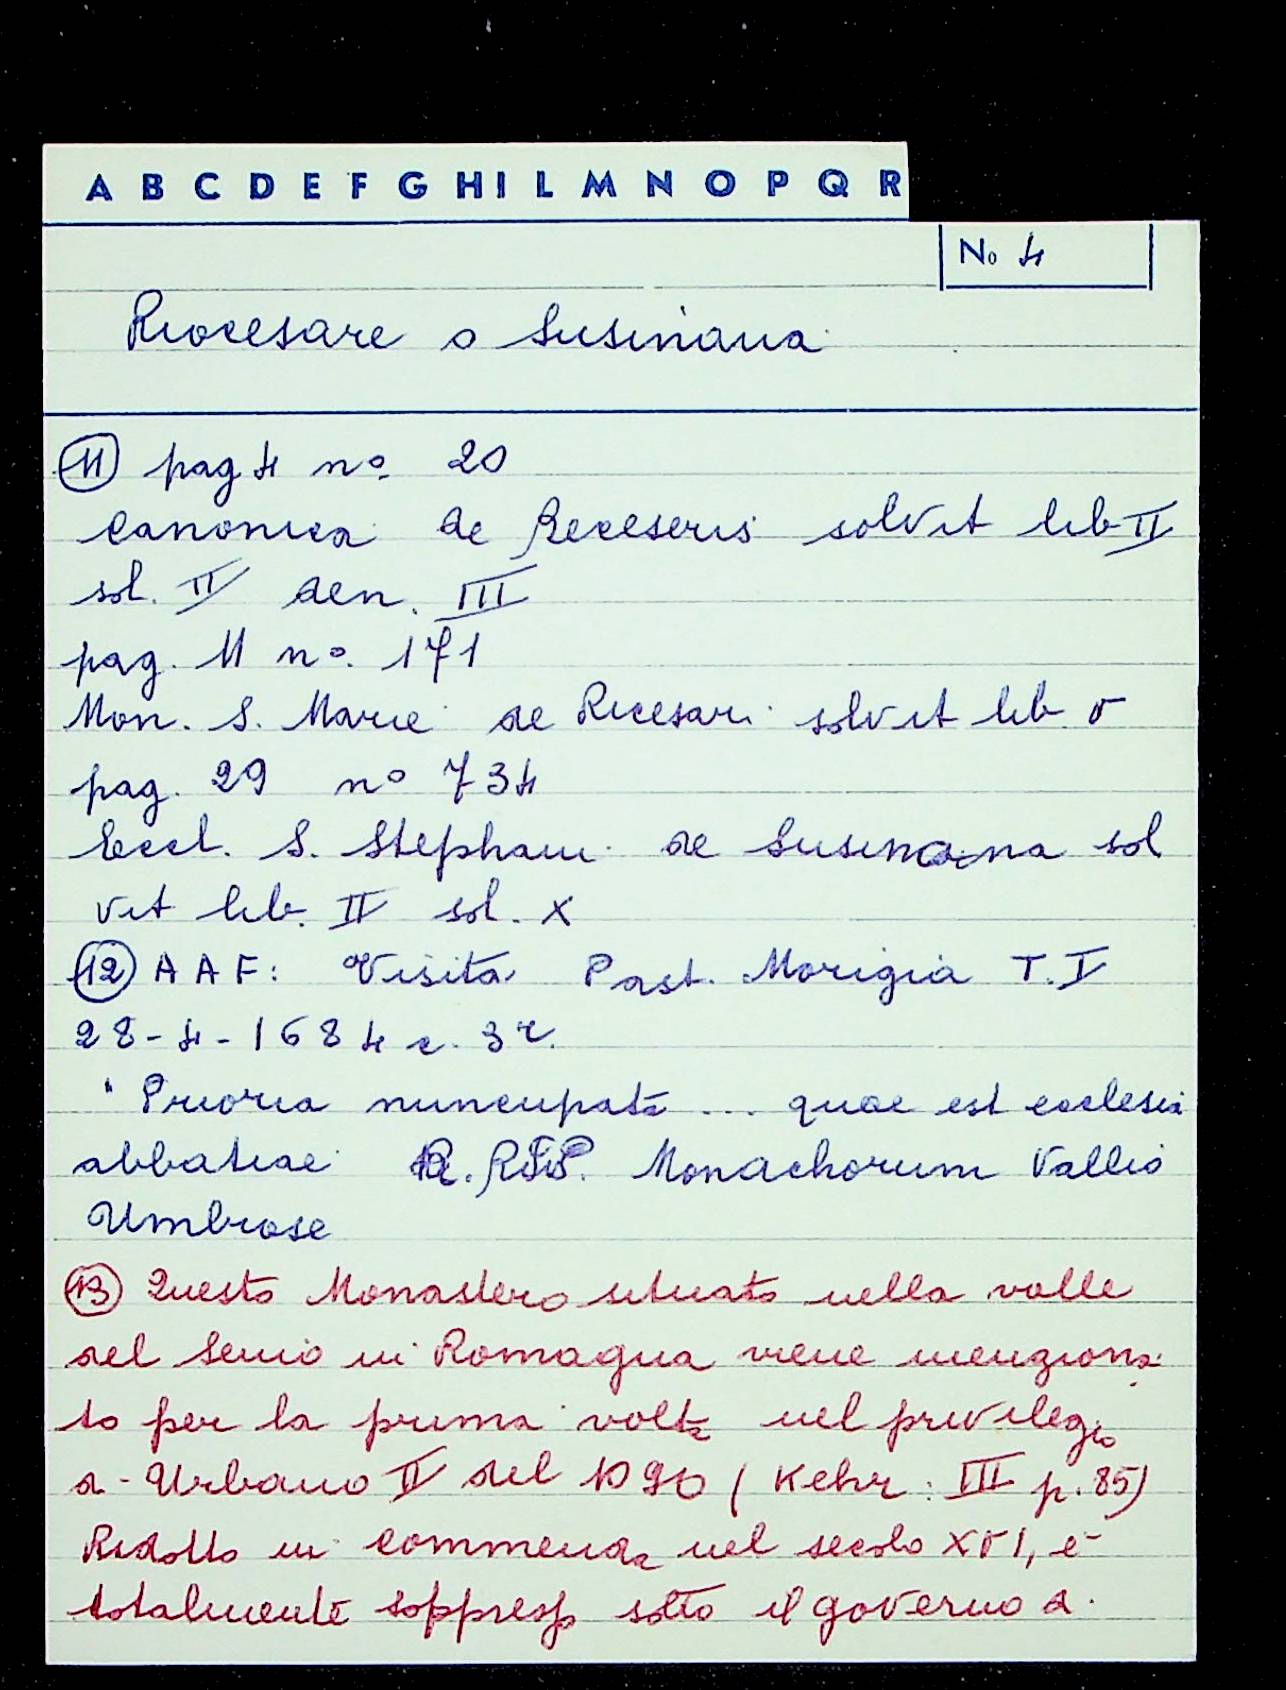 A B C D E F G H I L M N O P Q R
No 4
Riocesare o Susinana
11 pag 4 no. 20
Canonica de Receseris solvit lib II
sol. II den. III
pag. 11 no. 171
Mon. S. Marie de Ricesari solvit lib. V
pag. 29 no 734
Eccl. S. Stephani de Susinana sol
vit lib. II sol. X
12 AAF: Visita Past. Morigia T. I
28-4-1684 c. 3r.
"Prioria nuncupata ... quae est ecclesia
abbatiae R. R. P. P. Monachorum Vallis
Umbrose
13 Questo Monastero situato nella valle
del Senio in Romagna viene menziona
to per la prima volta nel privilegio
di Urbano II del 1090 (Kehr: III p. 85)
Ridotto in commenda nel secolo XVI, è
totalmente soppresso sotto il governo di